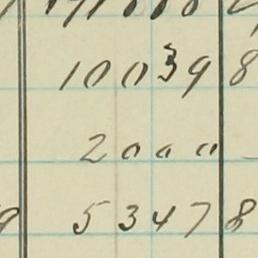 10039 8
2000 –
9 5347 8